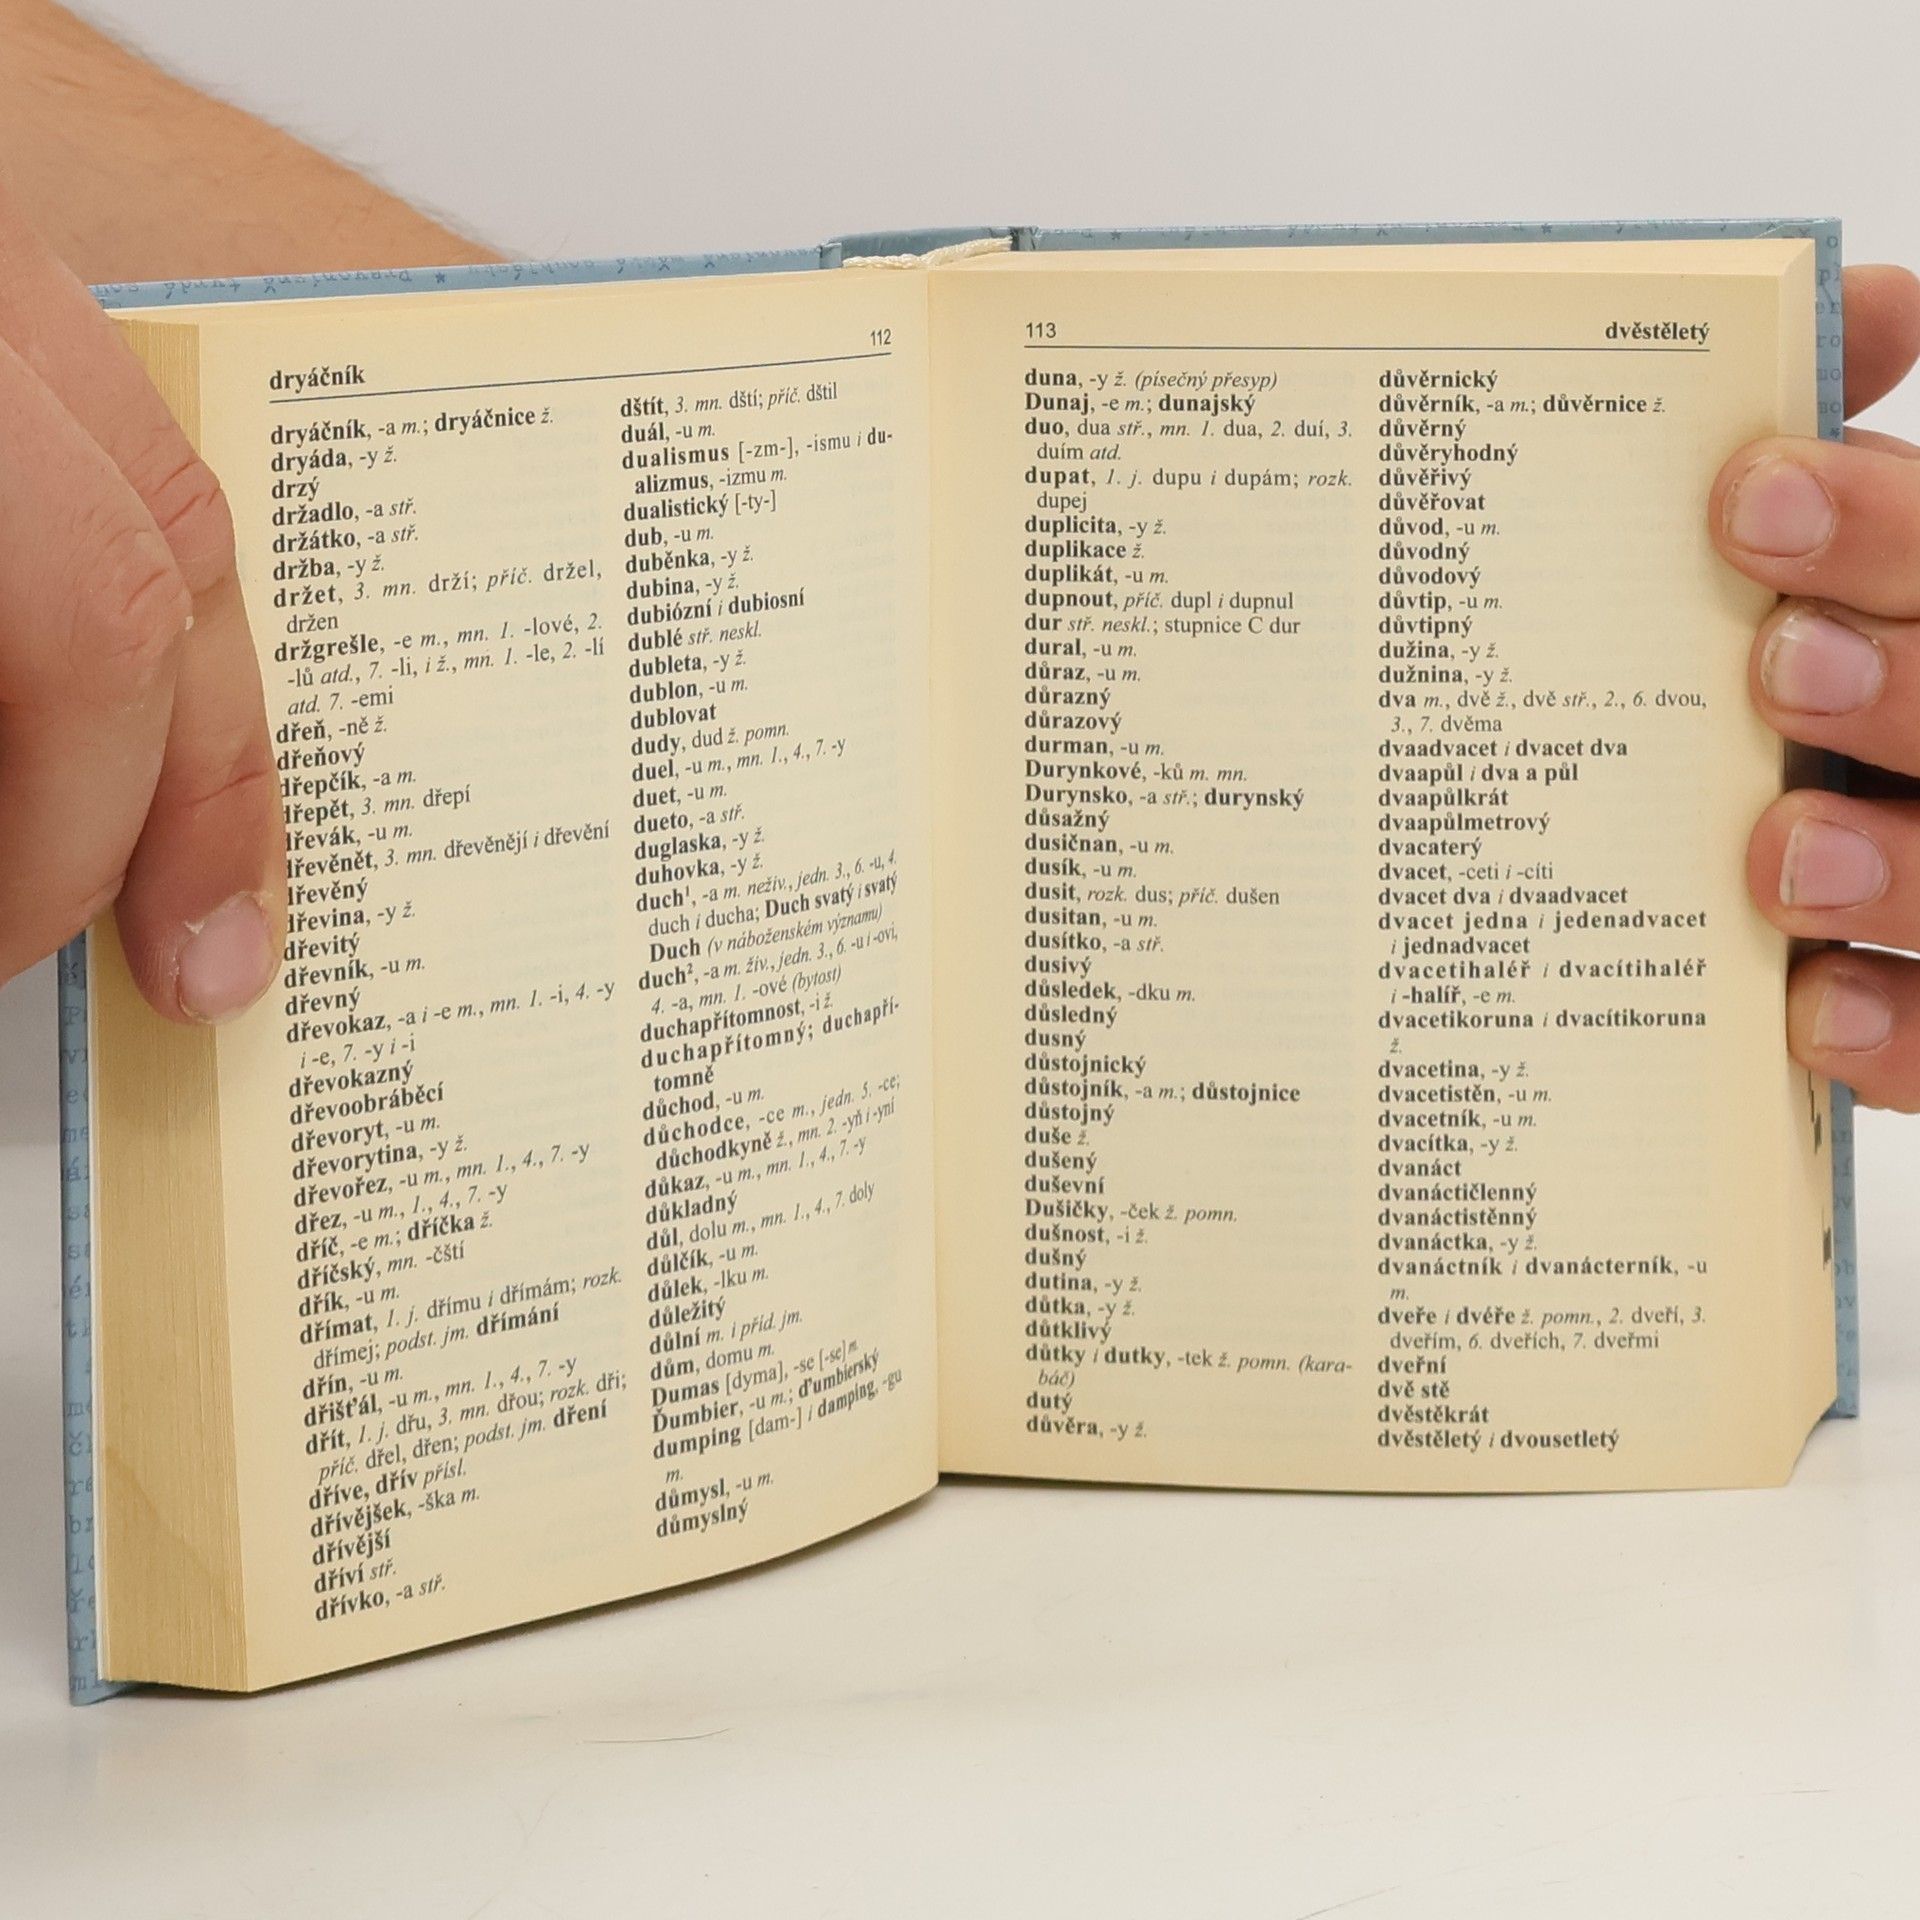 112
dryáčník
dryáčník, -a m.; dryáčnice ž.
dryáda, -y ž.
drzý
držadlo, -a stř.
držátko, -a stř.
držba, -y ž.
držet, 3. mn. drží; příč. držel,
držen
držgrešle, -e m., mn. 1. -lové, 2.
-lů atd., 7. -li, i ž., mn. 1. -le, 2. -lí
atd. 7. -emi
dřeň, -ně ž.
dřeňový
dřepčík, -a m.
dřepět, 3. mn. dřepí
dřevák, -u m.
dřevěnět, 3. mn. dřevěnějí i dřevění
dřevěný
dřevina, -y ž.
dřevitý
dřevník, -u m.
dřevný
dřevokaz, -a i -e m., mn. 1. -i, 4. -y
i -e, 7. -y i -i
dřevokazný
dřevoobráběcí
dřevoryt, -u m.
dřevorytina, -y ž.
dřevořez, -u m., mn. 1., 4., 7. -y
dřez, -u m., 1., 4., 7. -y
dříč, -e m.; dříčka ž.
dříčský, mn. -čští
dřík, -u m.
dřímat, 1. j. dřímu i dřímám; rozk.
dřímej; podst. jm. dřímání
dřín, -u m.
dřišťál, -u m., mn. 1., 4., 7. -y
dřít, 1. j. dřu, 3. mn. dřou; rozk. dři;
příč. dřel, dřen; podst. jm. dření
dříve, dřív přísl.
dřívějšek, -ška m.
dřívější
dříví stř.
dřívko, -a stř.
dštít, 3. mn. dští; příč. dštil
duál, -u m.
dualismus [-zm-], -ismu i du-
alizmus, -izmu m.
dualistický [-ty-]
dub, -u m.
duběnka, -y ž.
dubina, -y ž.
dubiózní i dubiosní
dublé stř. neskl.
dubleta, -y ž.
dublon, -u m.
dublovat
dudy, dud ž. pomn.
duel, -u m., mn. 1., 4., 7. -y
duet, -u m.
dueto, -a stř.
duglaska, -y ž.
duhovka, -y ž.
duch¹, -a m. neživ., jedn. 3., 6. -u, 4.
duch i ducha; Duch svatý i svatý
Duch (v náboženském významu)
duch², -a m. živ., jedn. 3., 6. -u i -ovi,
4. -a, mn. 1. -ové (bytost)
duchapřítomnost, -i ž.
duchapřítomný; duchapří-
tomně
důchod, -u m.
důchodce, -ce m., jedn. 5. -ce;
důchodkyně ž., mn. 2. -yň i -yní
důkaz, -u m., mn. 1., 4., 7. -y
důkladný
důl, dolu m., mn. 1., 4., 7. doly
důlčík, -u m.
důlek, -lku m.
důležitý
důlní m. i příd. jm.
dům, domu m.
Dumas [dyma], -se [-se] m.
Ďumbier, -u m.; ďumbierský
dumping [dam-] i damping, -gu
m.
důmysl, -u m.
důmyslný
113 dvěstěletý
duna, -y ž. (písečný přesyp)
Dunaj, -e m.; dunajský
duo, dua stř., mn. 1. dua, 2. duí, 3.
duím atd.
dupat, 1. j. dupu i dupám; rozk.
dupej
duplicita, -y ž.
duplikace ž.
duplikát, -u m.
dupnout, příč. dupl i dupnul
dur stř. neskl.; stupnice C dur
dural, -u m.
důraz, -u m.
důrazný
důrazový
durman, -u m.
Durynkové, -ků m. mn.
Durynsko, -a stř.; durynský
důsažný
dusičnan, -u m.
dusík, -u m.
dusit, rozk. dus; příč. dušen
dusitan, -u m.
dusítko, -a stř.
dusivý
důsledek, -dku m.
důsledný
dusný
důstojnický
důstojník, -a m.; důstojnice
důstojný
duše ž.
dušený
duševní
Dušičky, -ček ž. pomn.
dušnost, -i ž.
dušný
dutina, -y ž.
důtka, -y ž.
důtklivý
důtky i dutky, -tek ž. pomn. (kara-
báč)
dutý
důvěra, -y ž.
důvěrnický
důvěrník, -a m.; důvěrnice ž.
důvěrný
důvěryhodný
důvěřivý
důvěřovat
důvod, -u m.
důvodný
důvodový
důvtip, -u m.
důvtipný
dužina, -y ž.
dužnina, -y ž.
dva m., dvě ž., dvě stř., 2., 6. dvou,
3., 7. dvěma
dvaadvacet i dvacet dva
dvaapůl i dva a půl
dvaapůlkrát
dvaapůlmetrový
dvacaterý
dvacet, -ceti i -cíti
dvacet dva i dvaadvacet
dvacet jedna i jedenadvacet
i jednadvacet
dvacetihaléř i dvacítihaléř
i -halíř, -e m.
dvacetikoruna i dvacítikoruna
ž.
dvacetina, -y ž.
dvacetistěn, -u m.
dvacetník, -u m.
dvacítka, -y ž.
dvanáct
dvanáctičlenný
dvanáctistěnný
dvanáctka, -y ž.
dvanáctník i dvanácterník, -u
m.
dveře i dvéře ž. pomn., 2. dveří, 3.
dveřím, 6. dveřích, 7. dveřmi
dveřní
dvě stě
dvěstěkrát
dvěstěletý i dvousetletý